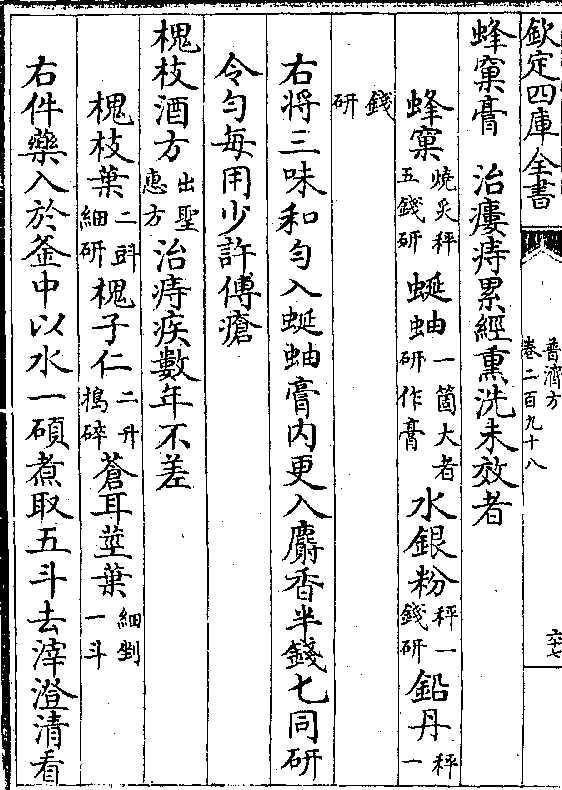 欽定四庫全書
普濟方
卷二百九十八
六十七
蜂窠膏　治瘻痔累經熏洗未效者
蜂窠燒炙秤五錢研蜒蚰一箇大者研作膏水銀粉秤一錢研鉛丹秤一
錢研
右將三味和勻入蜒蚰膏内更入麝香半錢七同研
令勻每用少許傅瘡
槐枝酒方出聖惠方治痔疾數年不差
槐枝葉二㪷細研槐子仁二升搗碎蒼耳莖葉細剉一斗
右件藥入於釜中以水一碩煮取五斗去滓澄清看